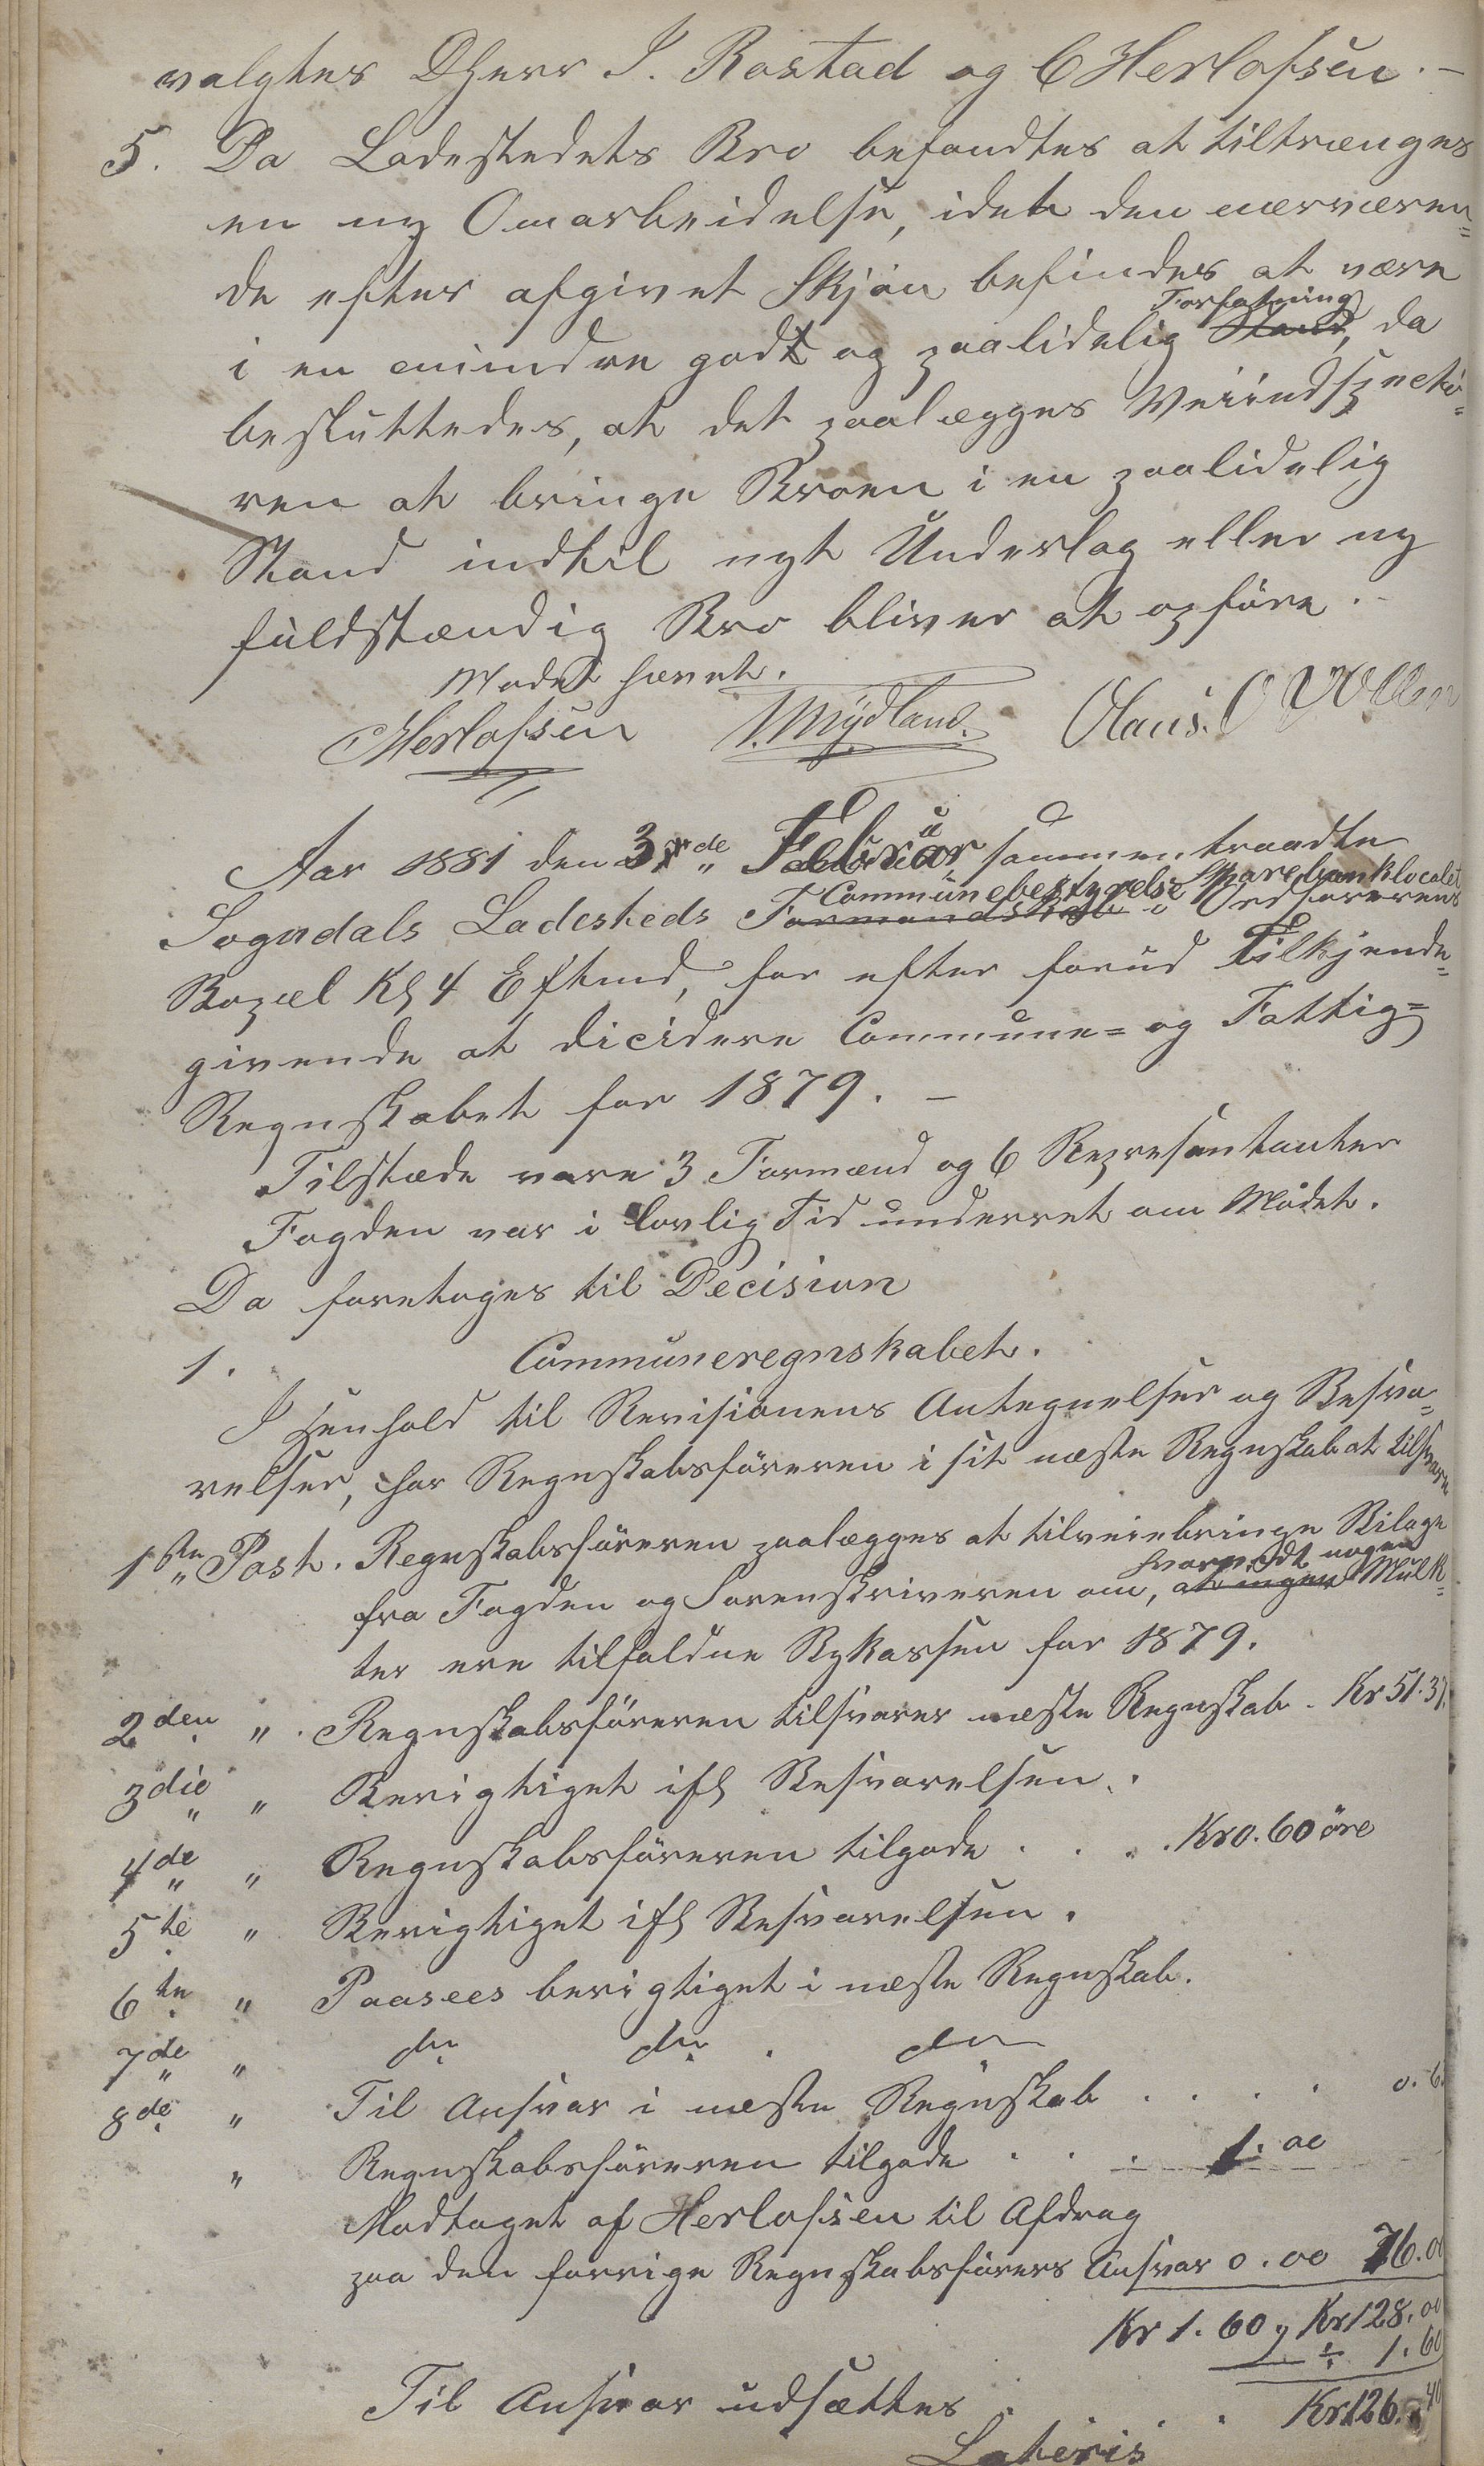 valgtes DHerr I. Rostad og C Herlofsen. –
5. Da Ladestedets Bro befandtes at tiltrænges
en ny Omarbeidelse, idet den nærværen=
de efter afgivet Skjøn befindes at være
i en mindre godt og paalidelig Forfatning Stand, da
besluttedes, at det paalægges Veiindspectø=
ren at bringe Broen i en paalidelig
Stand indtil nyt Underlag eller ny
fuldstændig Bro bliver at opføre. –
Mødet hævet.
CHerlofsen T. Mydland. Claus. O Wollen
Aar 1881 den 3de Februar sammentraadte
Sogndals Ladesteds Communebestyrelse Formandskab i Sparebanklocalet Ordførerens
Bopæl Kl 4 Eftmd, for efter forud Tilkjende=
givende at dicidere Commune= og Fattig=
Regnskabet for 1879. –
Tilstæde vare 3 Formænd og 6 Representanter
Fogden var i lovlig Tid underret om Mødet.
Da foretoges til Decision
1. Communeregnskabet.
I Henhold til Revisionens Antegnelser og Besva=
relser, har Regnskabsføreren i sit næste Regnskab at tilsvare
1ste Post. Regnskabsføreren paalægges at tilveiebringe Bilage
fra Fogden og Sorenskriveren om, hvorvidt nogen at ingen Mulk=
ter ere tilfaldne Bykassen for 1879.
2den " . Regnskabsføreren tilsvarer næste Regnskab . Kr 51.37.
3die " Berigtiget ifl Besvarelsen.
4de " Regnskabsføreren tilgode . . . . Kr 0.60 øre
5te " Berigtiget ifl Besvarelsen.
6te " Paasees berigtiget i næste Regnskab.
7de " do do . do
8de " Til Ansvar i næste Regnskab . . . . 0.6
" Regnskabsføreren tilgode . . . 1.00
Modtaget af Herlofsen til Afdrag
paa den forrige Regnskabsførers Ansvar 0.00 76.00
Kr 1.60 Kr 128.00
÷ 1.60
Til Ansvar udsættes . . . . Kr 126.40
Lateris